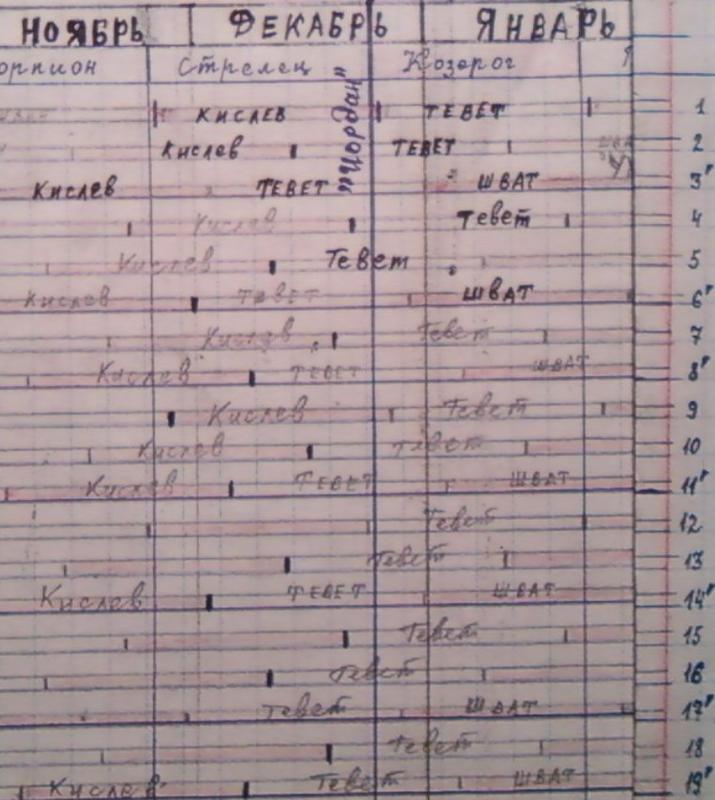 НОЯБРЬ ДЕКАБРЬ ЯНВАРЬ
Стрелец Козерог
"Иордан"
Кислев ТЕВЕТ 1
Кислев ТЕВЕТ 2
Кислев ТЕВЕТ ШВАТ 3"
Кислев Тевет 4
Кислев Тевет 5
Кислев ТЕВЕТ ШВАТ 6"
Кислев Тевет 7
Кислев ТЕВЕТ ШВАТ 8"
Кислев Тевет 9
Кислев Тевет 10
Кислев ТЕВЕТ ШВАТ 11"
Тевет 12
Тевет 13
Кислев ТЕВЕТ ШВАТ 14"
Тевет 15
Тевет 16
Тевет ШВАТ 17"
Тевет 18
Кислев Тевет ШВАТ 19"